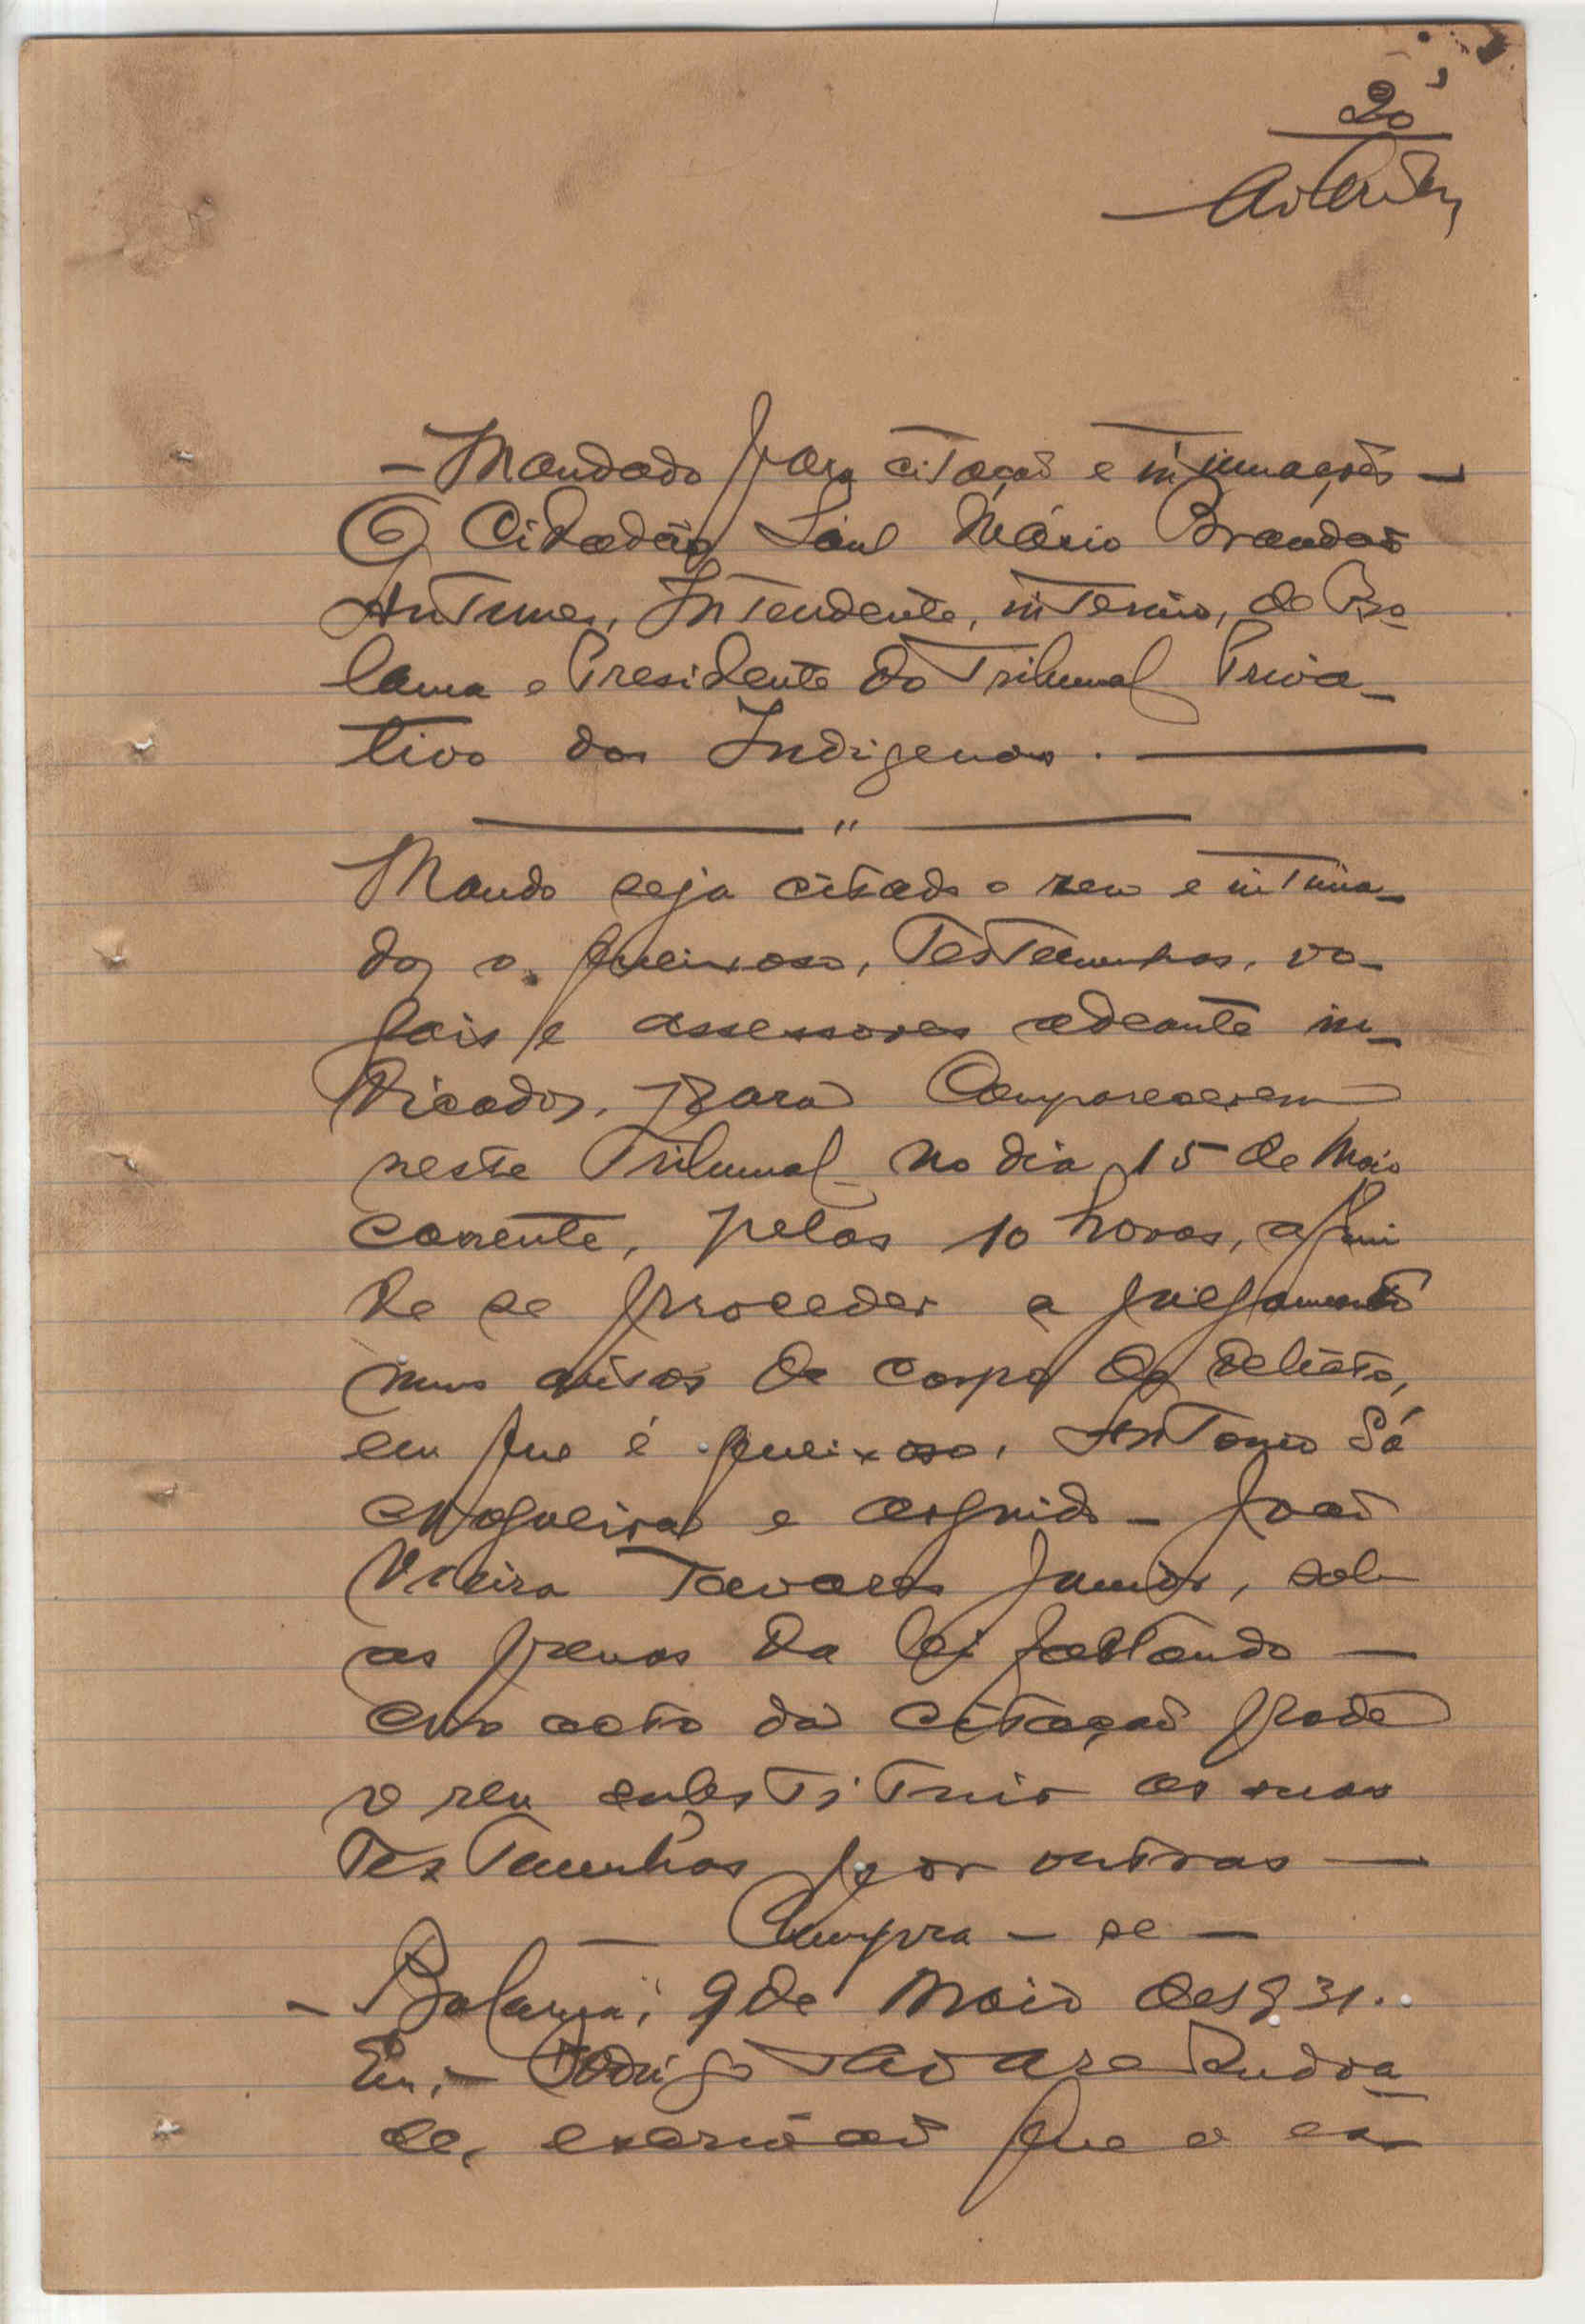 20
- Mandado para citação e intimações -
O Cidadão Saul Mário Brandão
Antunes, Intendente, interino, de Bo-
lama e Presidente do Tribunal Priva-
tivo dos Indigenas. —
— " —
Mando seja citado o reu e intima-
dos o queixoso, Testemunhas, vo-
gais e assessores adeante in-
dicados, para comparecerem
neste Tribunal no dia 15 de Maio
corrente, pelas 10 horas, afim
de se proceder a julgamento
nuns autos de corpo de delicto,
em que é queixoso, Antonio Sá
Nogueira e arguido - João
Vieira Tavares Junior, sob
as penas da lei faltando —
No acto da citação pode
o reu substituir as suas
Testemunhas por outras —
— Cumpra - se —
- Bolama, 9 de Maio de 1931.
Eu, - Rodrigo Tavares Andra-
de, escrivão que o es-